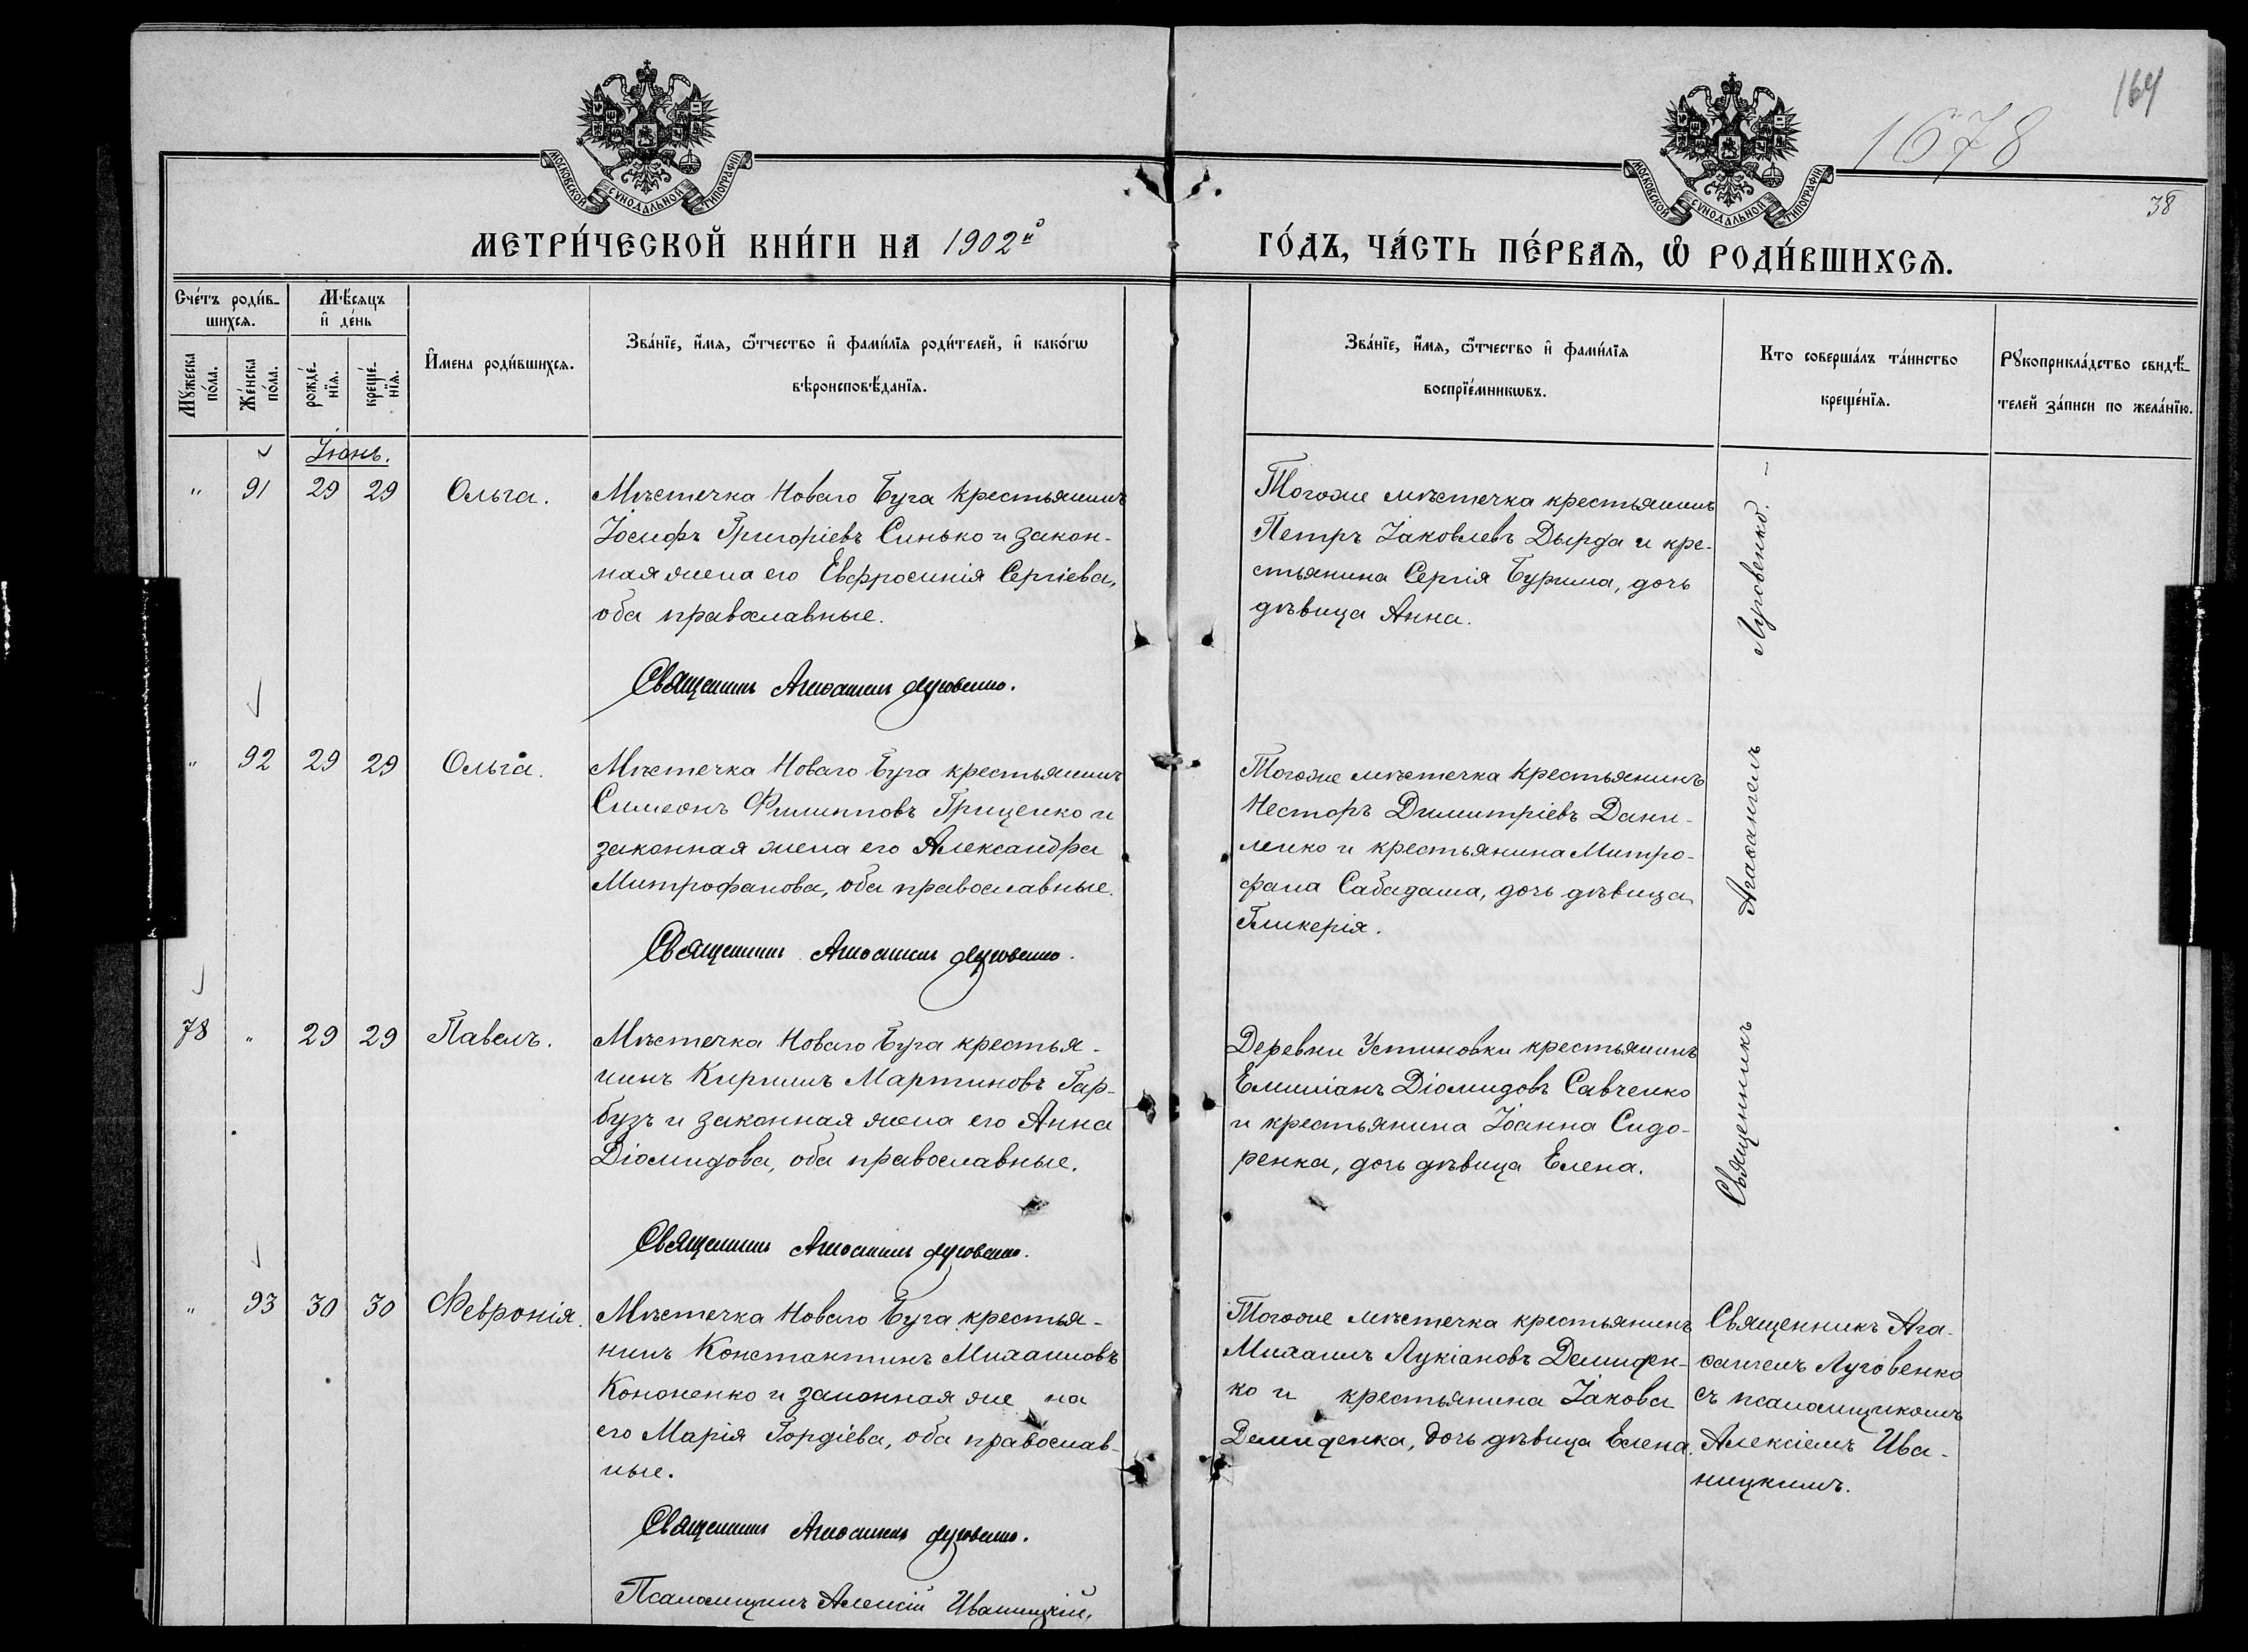 164
1678
38
МОСКОВСКОЙ СѴНОДАЛЬНОЙ ТИПОГРАФІИ
МОСКОВСКОЙ СѴНОДАЛЬНОЙ ТИПОГРАФІИ
МЕТРИ́ЧЕСКОЙ КНИ́ГИ НА 1902й
ГО́ДЪ, ЧА́СТЬ ПЕ́РВАѦ, Ѡ РОДИ́ВШИХСѦ.
Счéтъ роди́в-
шихсѧ.
Мѣ́сѧцъ
и дéнь
Мꙋ́жеска
по́ла.
Же́нска
по́ла.
рожде́-
нїѧ.
креще́-
нїѧ.
И҆мена роди́вшихсѧ.
Зва́нїе, и҆́мѧ, ѻ҆́тчество и҆ фами́лїѧ роди́телей, и҆ како́гѡ
вѣроисповѣ́данїѧ.
Зва́нїе, и҆́мѧ, ѻ҆́тчество и҆ фами́лїѧ
воспрїе́мникѡвъ.
Кто соверша́лъ та́инство
креще́нїѧ.
Рꙋкоприкла́дство свидѣ́-
телей за́писи по жела́нїю.
Іюнь.
" 91 29 29 Ольга.
Мѣстечка Новаго Буга крестьянинъ
Іосифъ Григоріевъ Синько и закон-
ная жена его Евфросинія Сергіева,
оба православные.
Священникъ Агаѳангелъ Луговенко.
Тогоже мѣстечка крестьянинъ
Петръ Іаковлевъ Дырда и кре-
стьянина Сергія Бурима, дочь
дѣвица Анна.
" 92 29 29 Ольга.
Мѣстечка Новаго Буга крестьянинъ
Симеонъ Филипповъ Гриценко и
законная жена его Александра
Митрофанова, оба православные.
Священникъ Агаѳангелъ Луговенко.
Тогоже мѣстечка крестьянинъ
Несторъ Димитріевъ Дани-
ленко и крестьянина Митро-
фана Сабадаша, дочь дѣвица
Гликерія.
78 " 29 29 Павелъ.
Мѣстечка Новаго Буга крестья-
нинъ Кириллъ Мартиновъ Гар-
бузъ и законная жена его Анна
Діомидова, оба православные.
Священникъ Агаѳангелъ Луговенко.
Деревни Устиновки крестьянинъ
Емиліанъ Діомидовъ Савченко
и крестьянина Іоанна Сидо-
ренка, дочь дѣвица Елена.
Священникъ Агаѳангелъ Луговенко. –
" 93 30 30 Февронія.
Мѣстечка Новаго Буга крестья-
нинъ Константинъ Михаиловъ
Кононенко и законная же на
его Марія Гордіева, оба православ-
ные.
Священникъ Агаѳангелъ Луговенко.
Псаломщикъ Алексій Иваницкій.
Тогоже мѣстечка крестьянинъ
Михаилъ Лукіановъ Демиден-
ко и крестьянина Іакова
Демиденка, дочь дѣвица Елена.
Священникъ Ага-
ѳангелъ Луговенко
съ псаломщикомъ
Алексіемъ Ива-
ницкимъ.